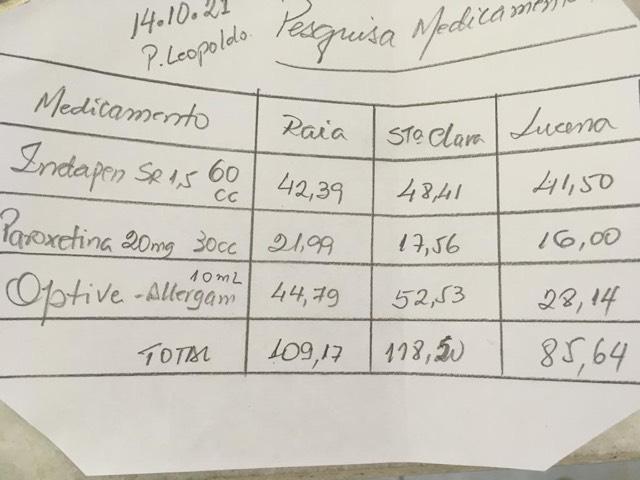 14.10.21
P. Leopoldo.
Pesquisa Medicamento
Medicamento Raia Stª Clara Lucena
Indapen SR 1,5 60 cc 42,39 48,41 41,50
Paroxetina 20mg 30cc 21,99 17,56 16,00
Optive - Allergam 10mL 44,79 52,53 28,14
TOTAL 109,17 118,50 85,64